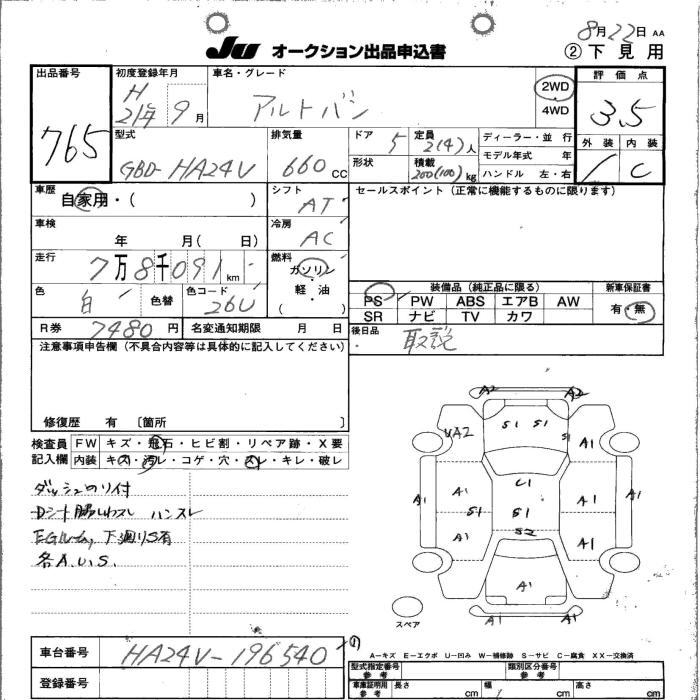 8月22日 AA
JU オークション出品申込書
②下見用
出品番号
765
初度登録年月
H
21年 9月
車名・グレード
アルトバン
2WD
4WD
評価点
3.5
外装 内装
C
型式
GBD-HA24V
排気量
660 CC
ドア 5
定員 2(4)人
形状
積載 200(100)kg
ディーラー・並行
モデル年式 年
ハンドル 左・右
車歴
自家用・( )
シフト
AT
セールスポイント(正常に機能するものに限ります)
車検
年 月( 日)
冷房
AC
走行
7万8千091km
燃料
ガソリン
軽・油
( )
色
白
色替
色コード
26U
装備品(純正品に限る)
PS PW ABS エアB AW
SR ナビ TV カワ
新車保証書
有・無
R券 7480円
名変通知期限 月 日
後日品
取説
注意事項申告欄(不具合内容等は具体的に記入してください)
修復歴 有 〔箇所 〕
検査員
記入欄
FW キズ・飛石・ヒビ割・リペア跡・X要
内装 キズ・汚レ・コゲ・穴・スレ・キレ・破レ
ダッシュのり付
Dシート脇しわスレ ハンスレ
EGルーム,下廻りS有
各A.U.S.
A2 A2
UA2 S1 S1 S1 A1
A1 A1 S1 C1 S1 A1 A1
A1 S2 A1
A1
A1 A1
スペア
車台番号
HA24V-196540
①
A-キズ E-エクボ U-凹み W-補修跡 S-サビ C-腐食 XX-交換済
登録番号
型式指定番号
参考
類別区分番号
参考
車庫証明用
参考
長さ cm 幅 cm 高さ cm